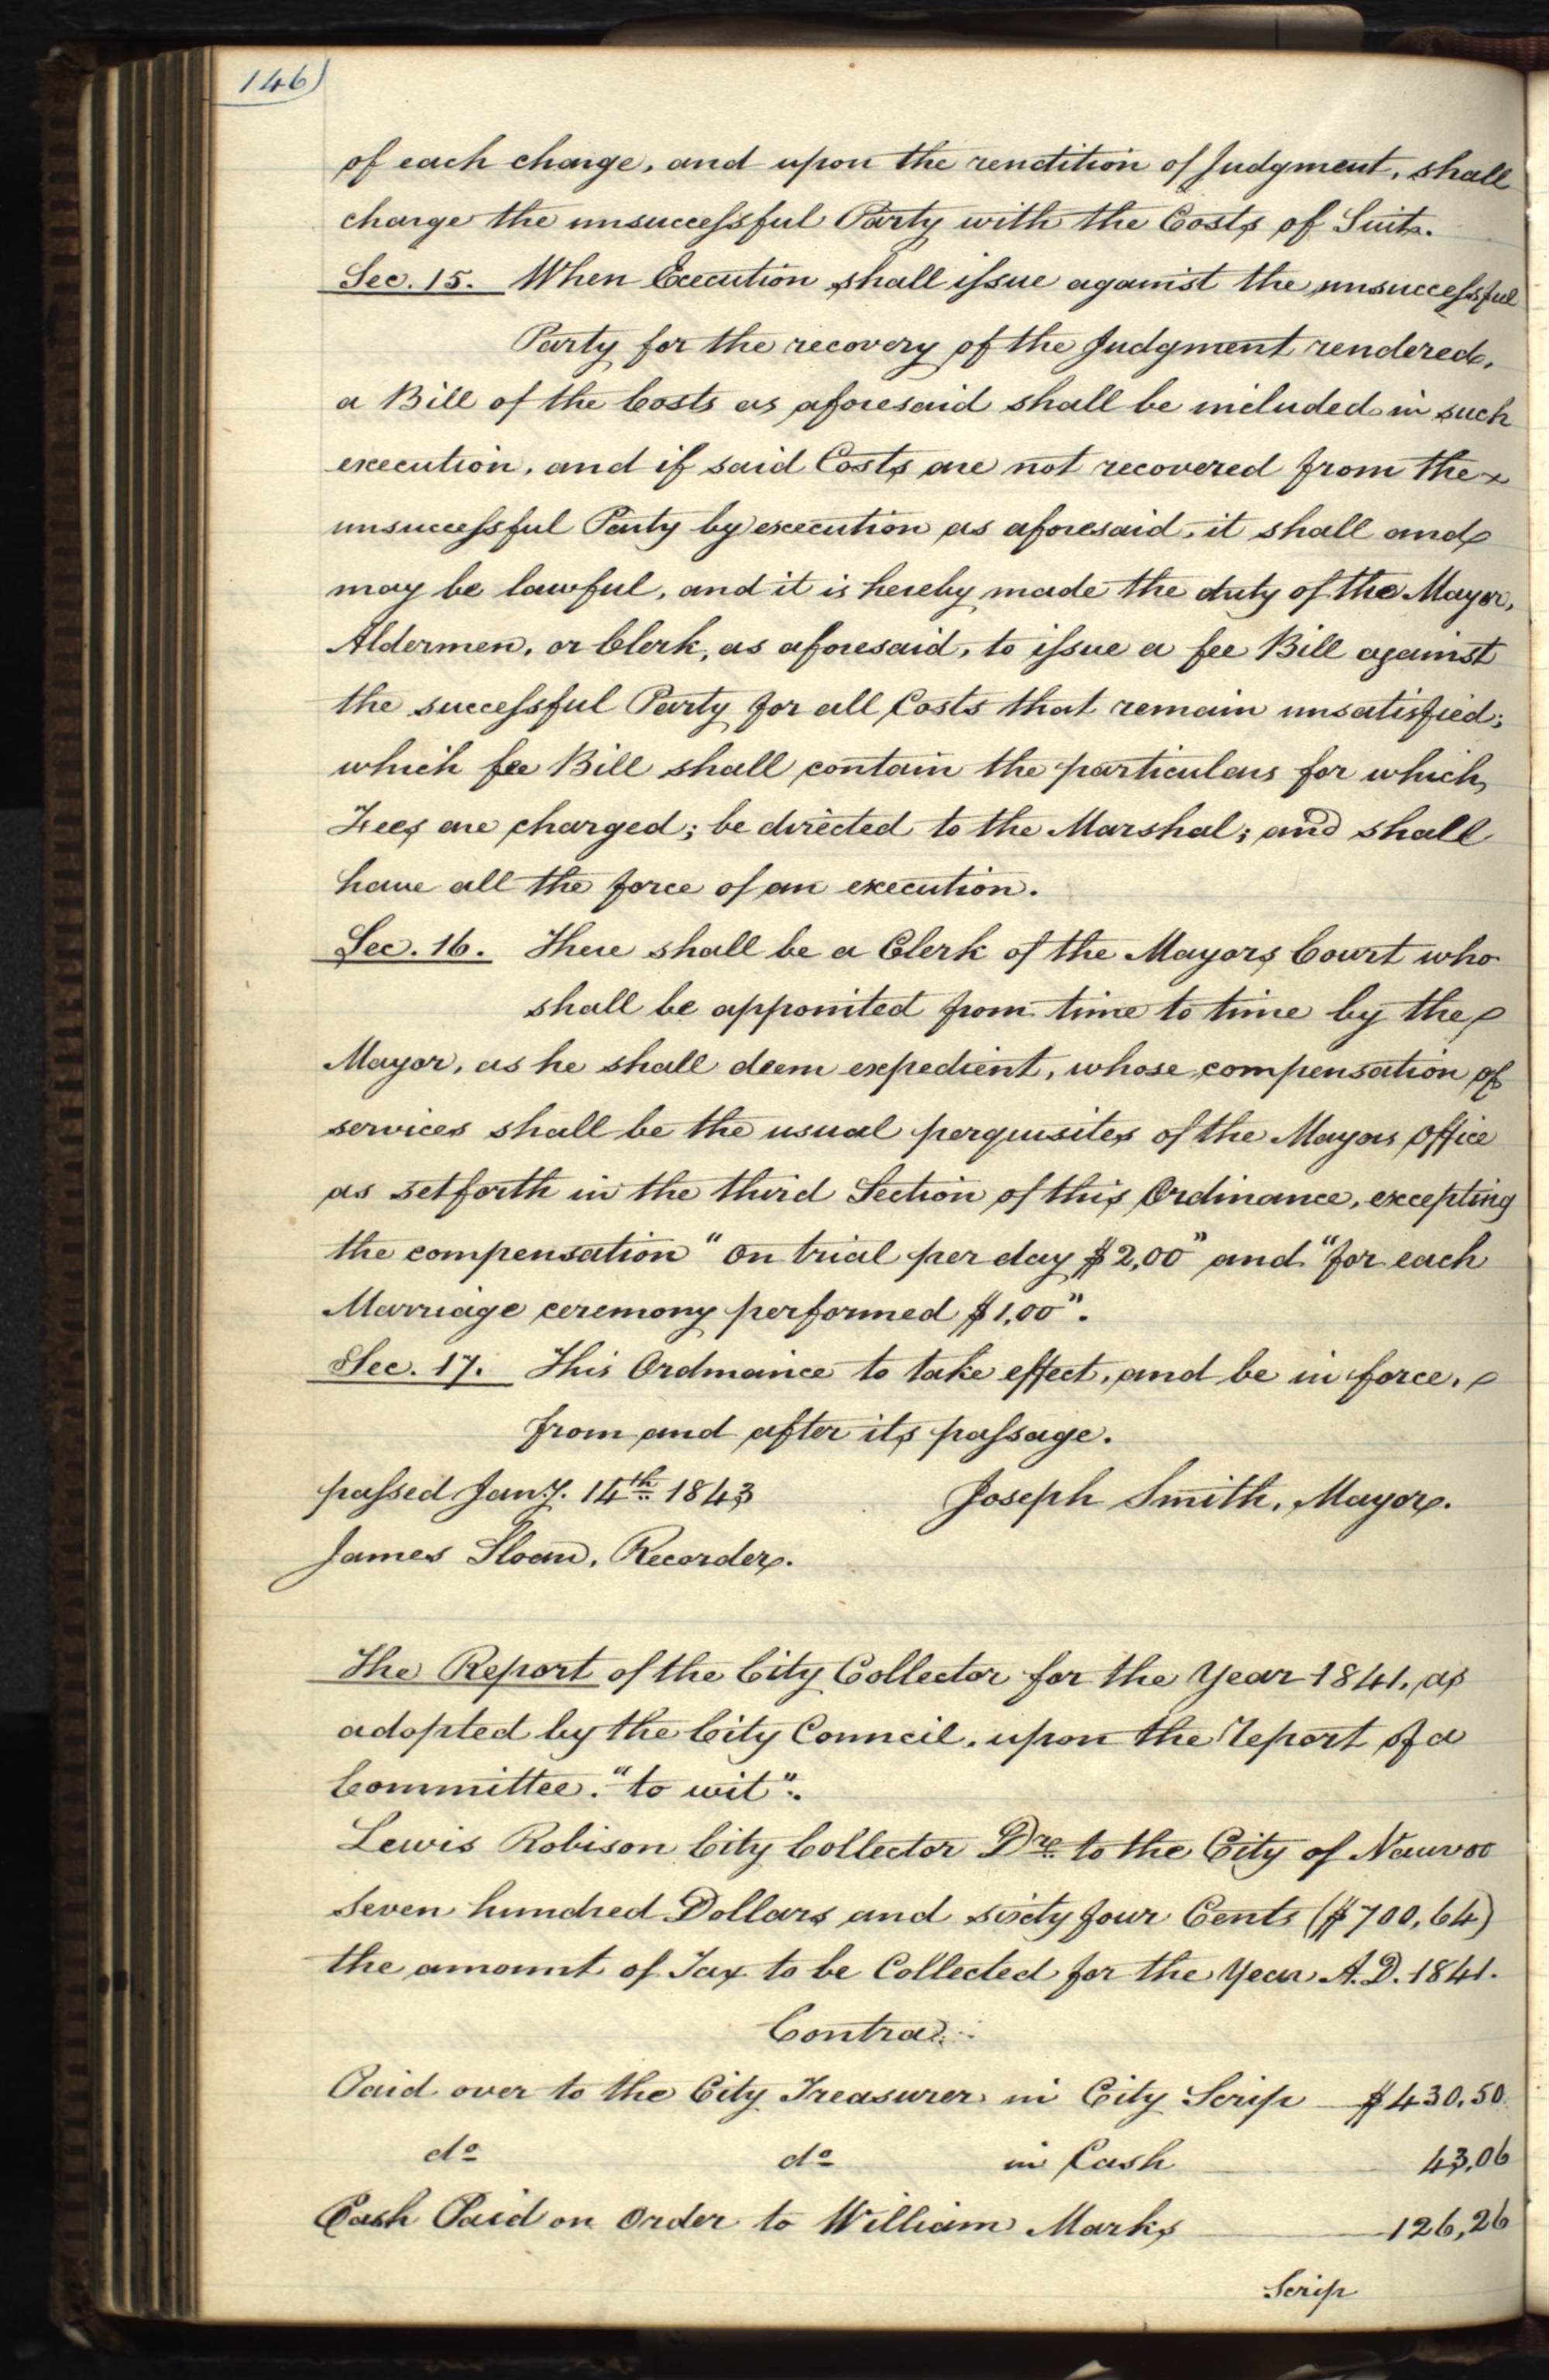 146)
of each charge, and upon the rendition of Judgment, shall
charge the unsuccessful Party with the Costs of Suit.
Sec. 15. When Execution shall issue against the unsuccessful
Party for the recovery of the Judgment rendered,
a Bill of the Costs as aforesaid shall be included in such
execution, and if said Costs are not recovered from the
unsuccessful Party by execution as aforesaid, it shall and
may be lawful, and it is hereby made the duty of the Mayor,
Aldermen, or Clerk, as aforesaid, to issue a fee Bill against
the successful Party for all Costs that remain unsatisfied;
which fee Bill shall contain the particulars for which
Fees are charged; be directed to the Marshal; and shall
have all the force of an execution.
Sec. 16. There shall be a Clerk of the Mayors Court who
shall be appointed from time to time by the
Mayor, as he shall deem expedient, whose compensation of
services shall be the usual perquisites of the Mayors office
as setforth in the third Section of this Ordinance, excepting
the compensation "on trial per day $2,00" and "for each
Marriage ceremony performed $1,00".
Sec. 17. This Ordinance to take effect, and be in force,
from and after its passage.
passed Jany. 14th 1843 Joseph Smith, Mayor.
James Sloan, Recorder.
The Report of the City Collector for the Year 1841, as
adopted by the City Council, upon the Report of a
Committee. "to wit".
Lewis Robison City Collector Dr. to the City of Nauvoo
seven hundred Dollars and sixty four Cents ($700,64)
the amount of Tax to be Collected for the Year A.D. 1841.
Contra.
Paid over to the City Treasurer in City Scrip $430,50
do do in Cash 43,06
Cash Paid on order to William Marks 126,26
Scrip